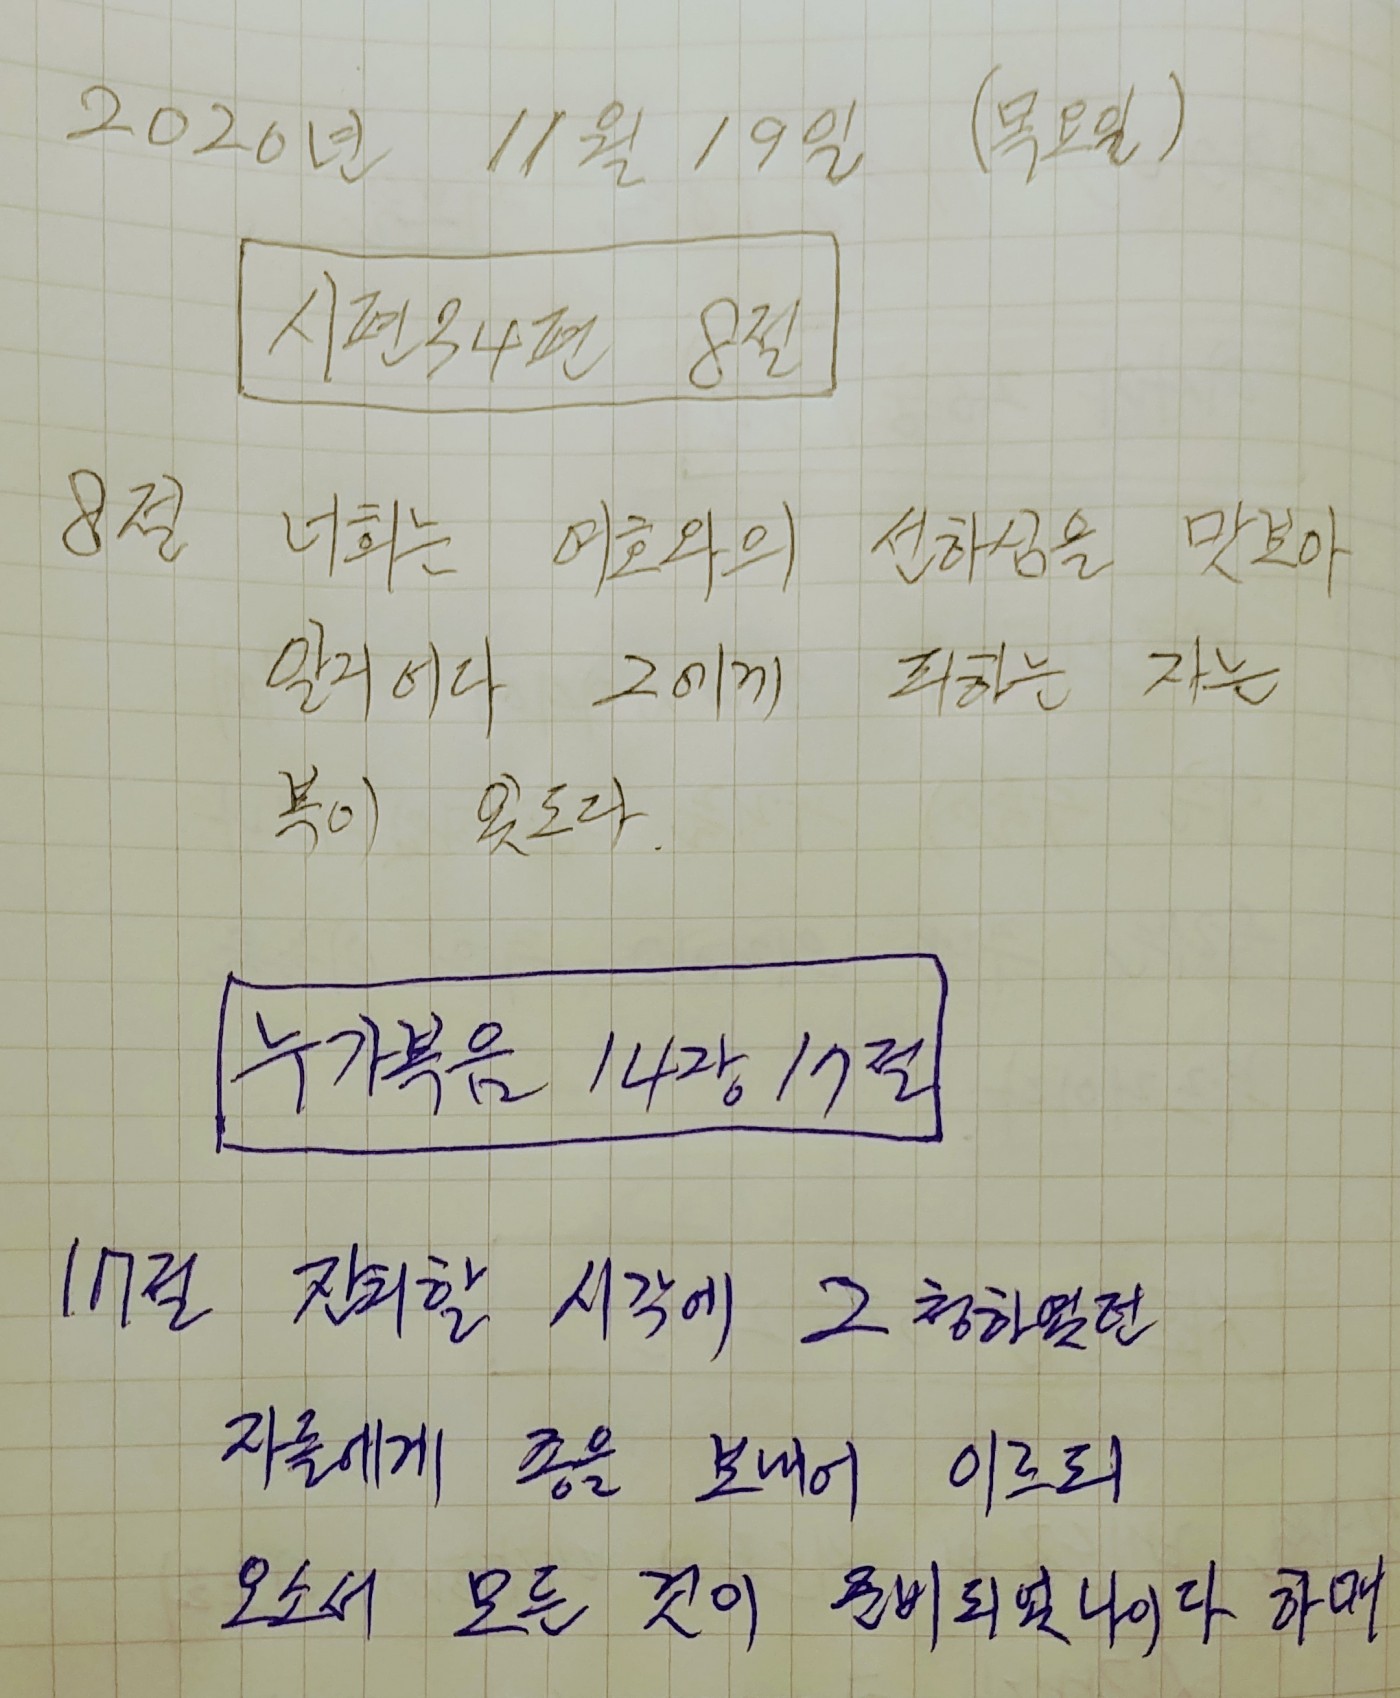 2020년 11월 19일 (목요일)
시편34편 8절
8절 너희는 여호와의 선하심을 맛보아
알지어다 그에게 피하는 자는
복이 있도다.
누가복음 14장 17절
17절 잔치할 시각에 그 청하였던
자들에게 종을 보내어 이르되
오소서 모든 것이 준비되었나이다 하매